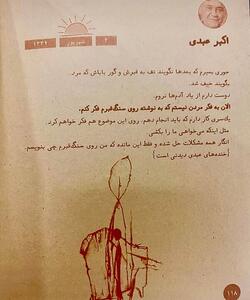 اکبر عبدی
۴ شهریور ۱۳۳۹
جوری بمیرم که بعدها نگویند تف به قبرش و گور باباش که مرد.
بگویند حیف شد.
دوست دارم از یاد آدم‌ها نروم.
الان به فکر مردن نیستم که به نوشته روی سنگ‌قبرم فکر کنم.
یک‌سری کار دارم که باید انجام دهم. روی این موضوع هم فکر خواهم کرد.
مثل اینکه می‌خواهی ما را بکشی
انگار همه مشکلات حل شده و فقط این مانده که من روی سنگ‌قبرم چی بنویسم.
[خنده‌های عبدی دیدنی است]
۱۱۸